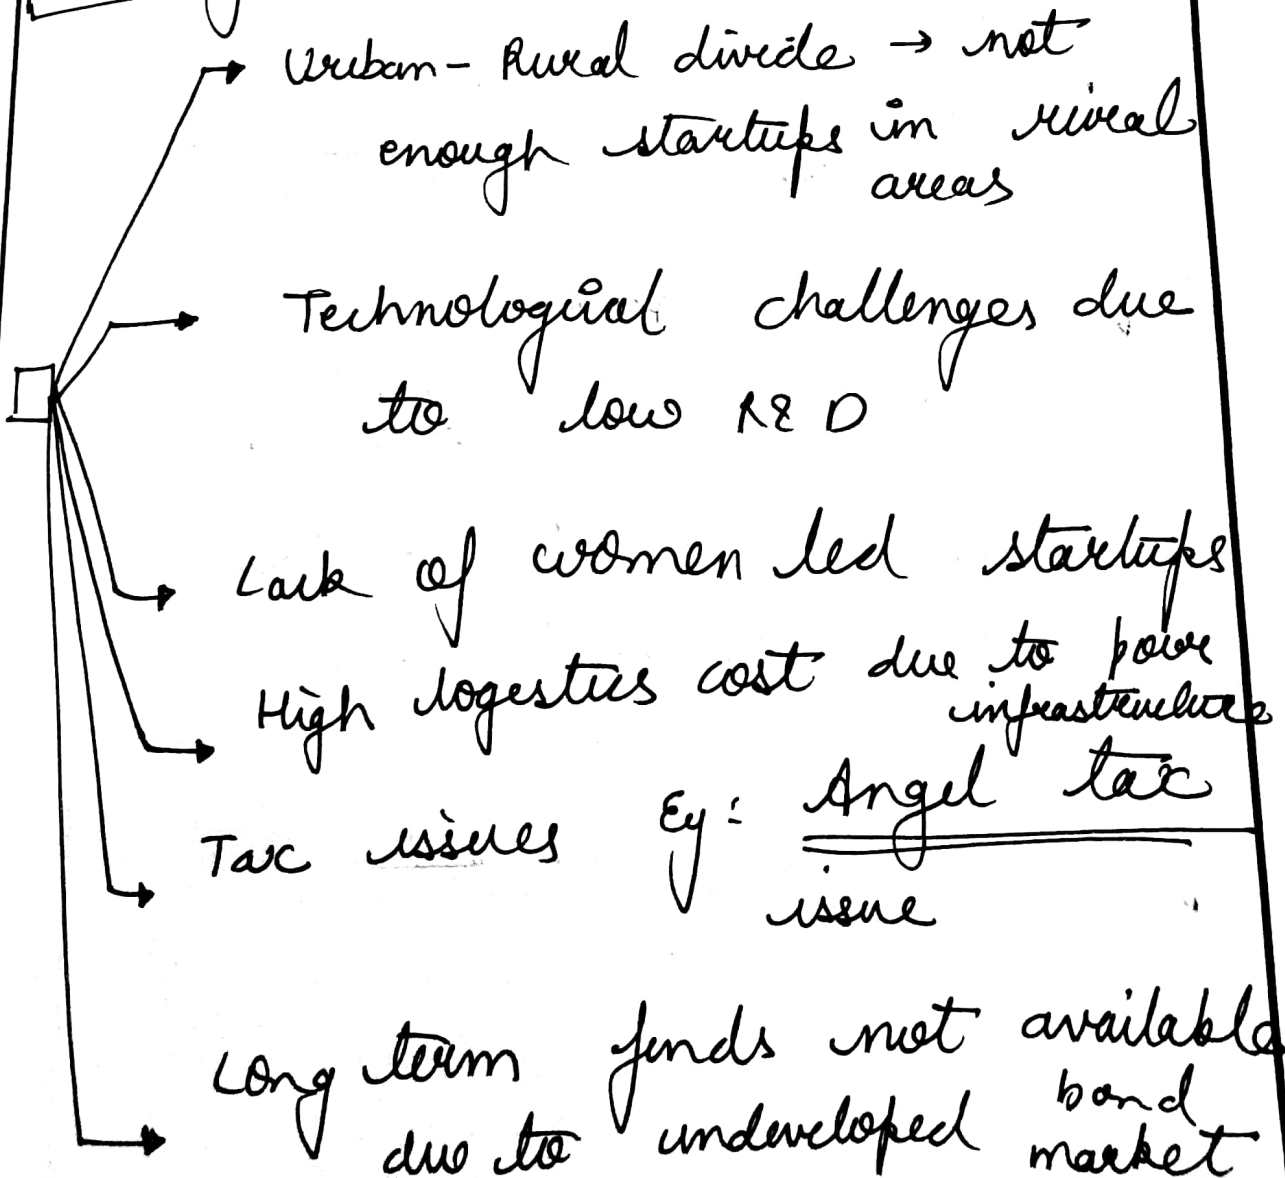 Urban - Rural divide → not
enough startups in rural
areas
Technological challenges due
to low R & D
Lack of women led startups
High logestics cost due to poor
infrastructure
Tax issues Eg: Angel tax
issue
Long term funds not available
due to undeveloped bond
market